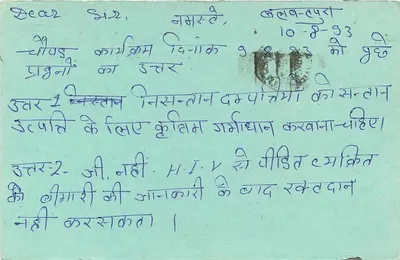 Dear Sir,
नमस्ते,
10-8-93
चौपड कार्यक्रम दिनांक 9-8-93 को पुछे
प्रश्नों का उत्तर
उत्तर-1 निसन्तान दम्पत्तिमा को सन्तान
उत्पत्ति के लिए कृत्रिम गर्भाधान करवाना चाहिए।
उत्तर-2- जी, नहीं. H.I.V से पीडित व्यक्ति
को बीमारी की जानकारी के बाद रक्तदान
नहीं कर सकता।